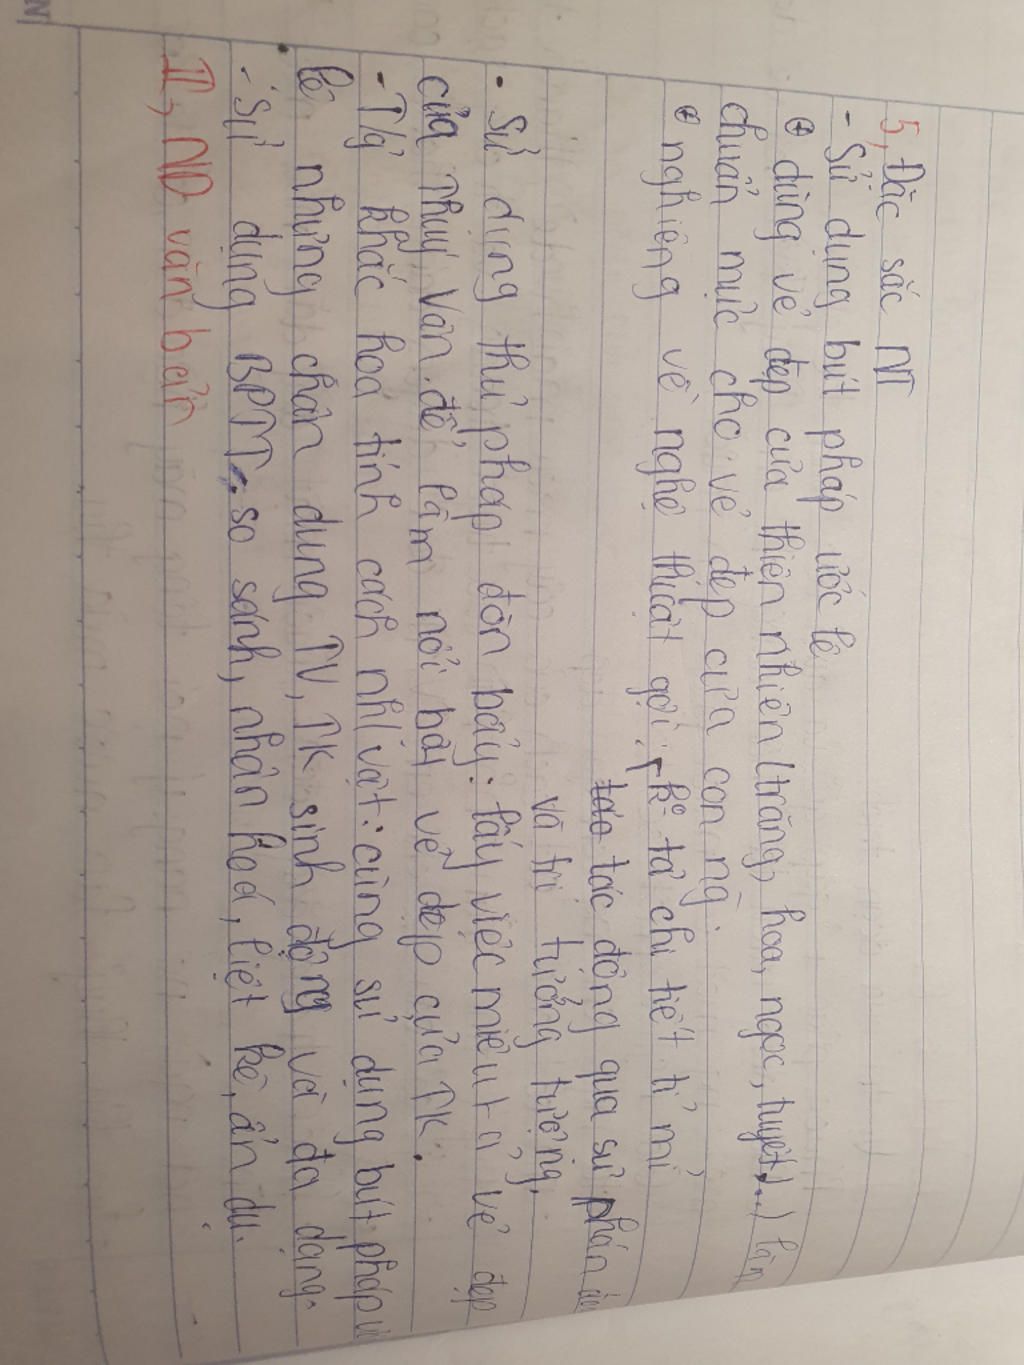 5, Đặc sắc NT
- Sử dụng bút pháp ước lệ
⊕ dùng vẻ đẹp của thiên nhiên (trăng, hoa, ngọc, tuyết,...) làm
chuẩn mực cho vẻ đẹp của con ng.
⊕ nghiêng về nghệ thuật gợi: k° tả chi tiết tỉ mỉ
tác động qua sự phán
và trí tưởng tượng.
• Sử dụng thủ pháp đòn bẩy: lấy việc miêu tả vẻ đẹp
của Thúy Vân để làm nổi bật vẻ đẹp của TK.
- T/g khắc hoạ tính cách nh/vật: cùng sử dụng bút pháp ư
lệ nhưng chân dung TV, TK sinh động và đa dạng.
- Sử dụng BPNT: so sánh, nhân hoá, liệt kê, ẩn dụ.
II, ND văn bản